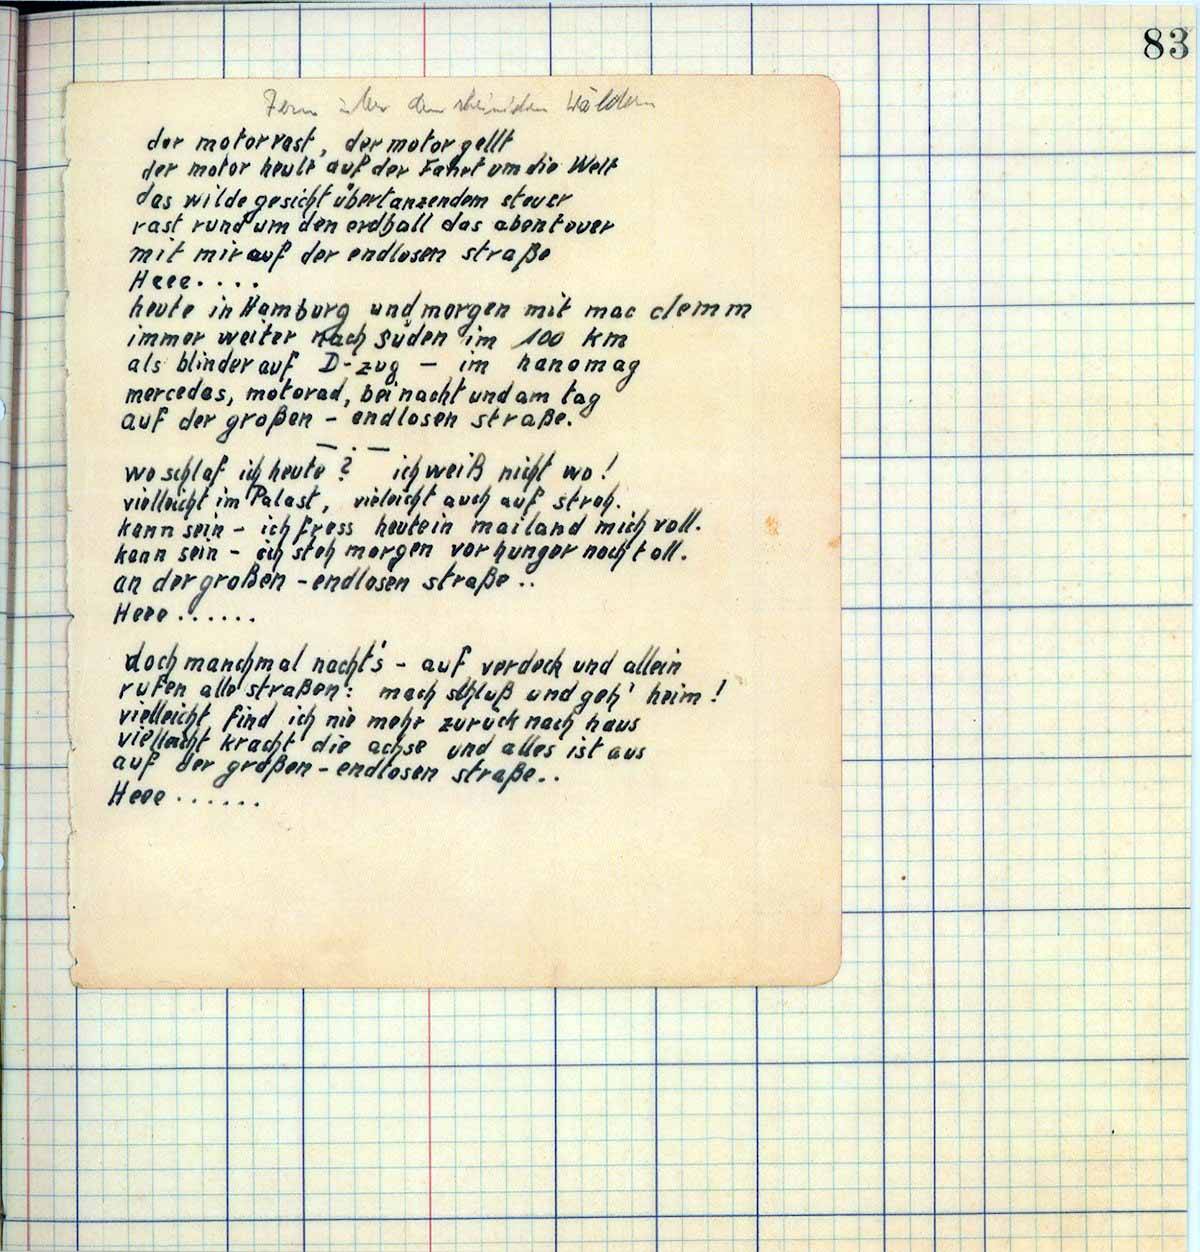 83
Fern über den Wäldern
der motor rast, der motor gellt
der motor heult auf der Fahrt um die Welt
das wilde gesicht über tanzendem steuer
rast rund um den erdball das abenteuer
mit mir auf der endlosen straße
Heee....
heute in Hamburg und morgen mit mac clemm
immer weiter nach süden im 100 km
als blinder auf D-zug – im hanomag
mercedes, motorad, bei nacht und am tag
auf der großen – endlosen straße.
— . —
wo schlaf ich heute ? ich weiß nicht wo!
vielleicht im Palast, vieleicht auch auf stroh.
kann sein – ich fress heute in mailand mich voll.
kann sein – ich steh morgen vor hunger noch toll.
an der großen – endlosen straße ..
Heee......
doch manchmal nacht's – auf verdeck und allein
rufen alle straßen: mach schluß und geh' heim!
vielleicht find ich nie mehr zurück nach haus
vielleicht kracht die achse und alles ist aus
auf der großen – endlosen straße..
Heee......